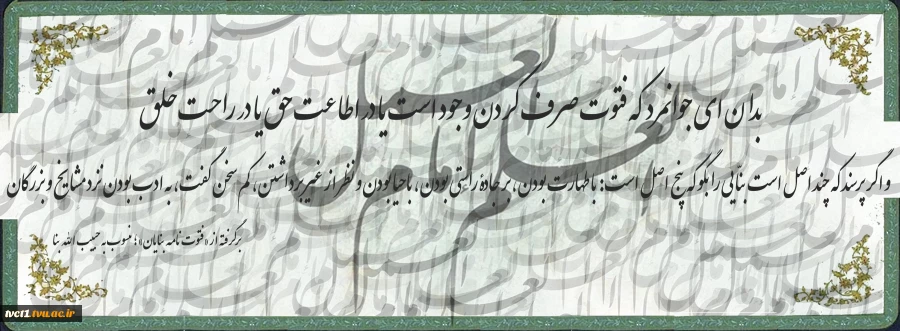 بدان ای جوانمرد که فتوت صرف کردن وجود است یا در اطاعت حق یا در راحت خلق
و اگر پرسند که چند اصل است بنّایی را بگو که پنج اصل است: با طهارت بودن، بر جادهٔ راستی بودن، با حیا بودن و نظر از غیر برداشتن، کم سخن گفتن، به ادب بودن نزد مشایخ و بزرگان
برگرفته از «فتوت نامه بنایان»؛ منسوب به حبیب الله بنا
tvct1.tvu.ac.ir